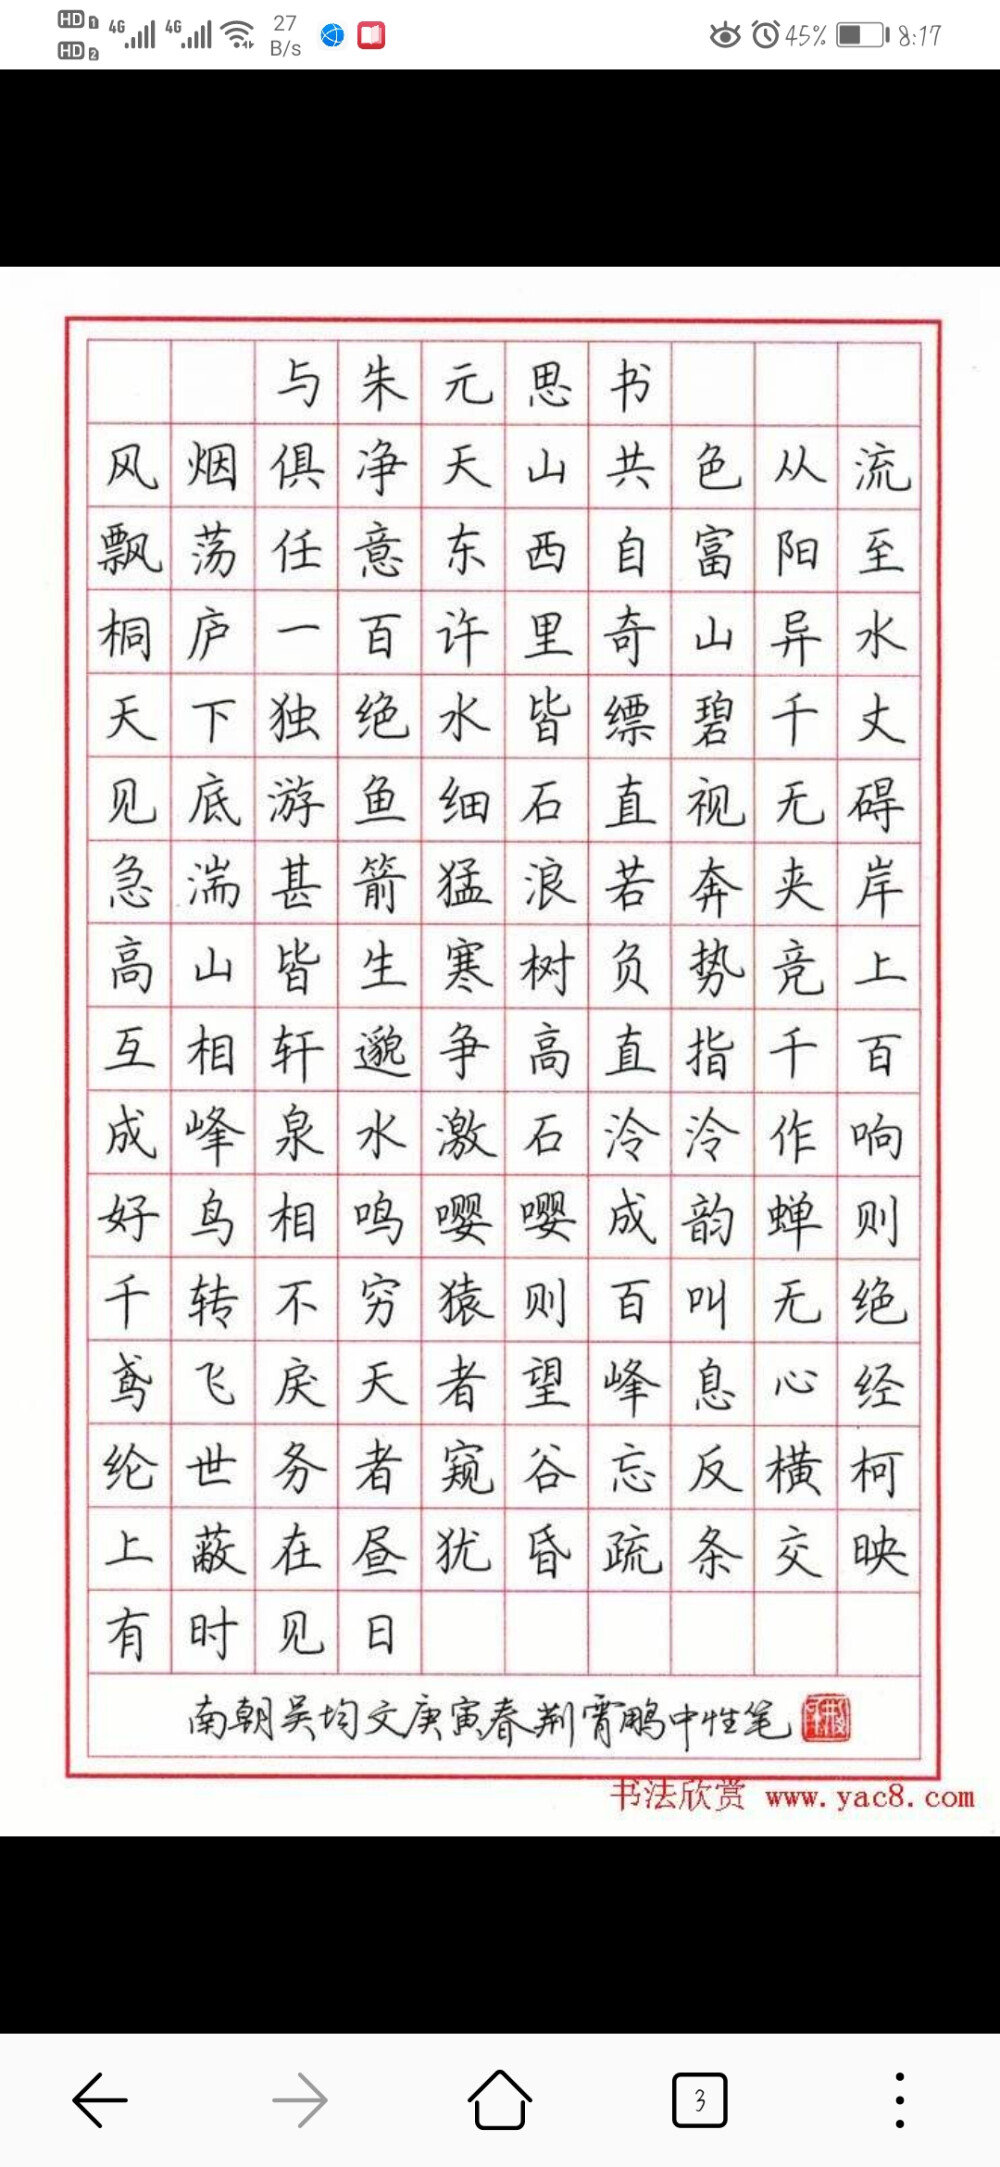 HD 1 4G 4G 27 B/s 45% 8:17
HD 2
与朱元思书
风烟俱净天山共色从流
飘荡任意东西自富阳至
桐庐一百许里奇山异水
天下独绝水皆缥碧千丈
见底游鱼细石直视无碍
急湍甚箭猛浪若奔夹岸
高山皆生寒树负势竞上
互相轩邈争高直指千百
成峰泉水激石泠泠作响
好鸟相鸣嘤嘤成韵蝉则
千转不穷猿则百叫无绝
鸢飞戾天者望峰息心经
纶世务者窥谷忘反横柯
上蔽在昼犹昏疏条交映
有时见日
南朝吴均文庚寅春荆霄鹏中性笔
书法欣赏 www.yac8.com
3